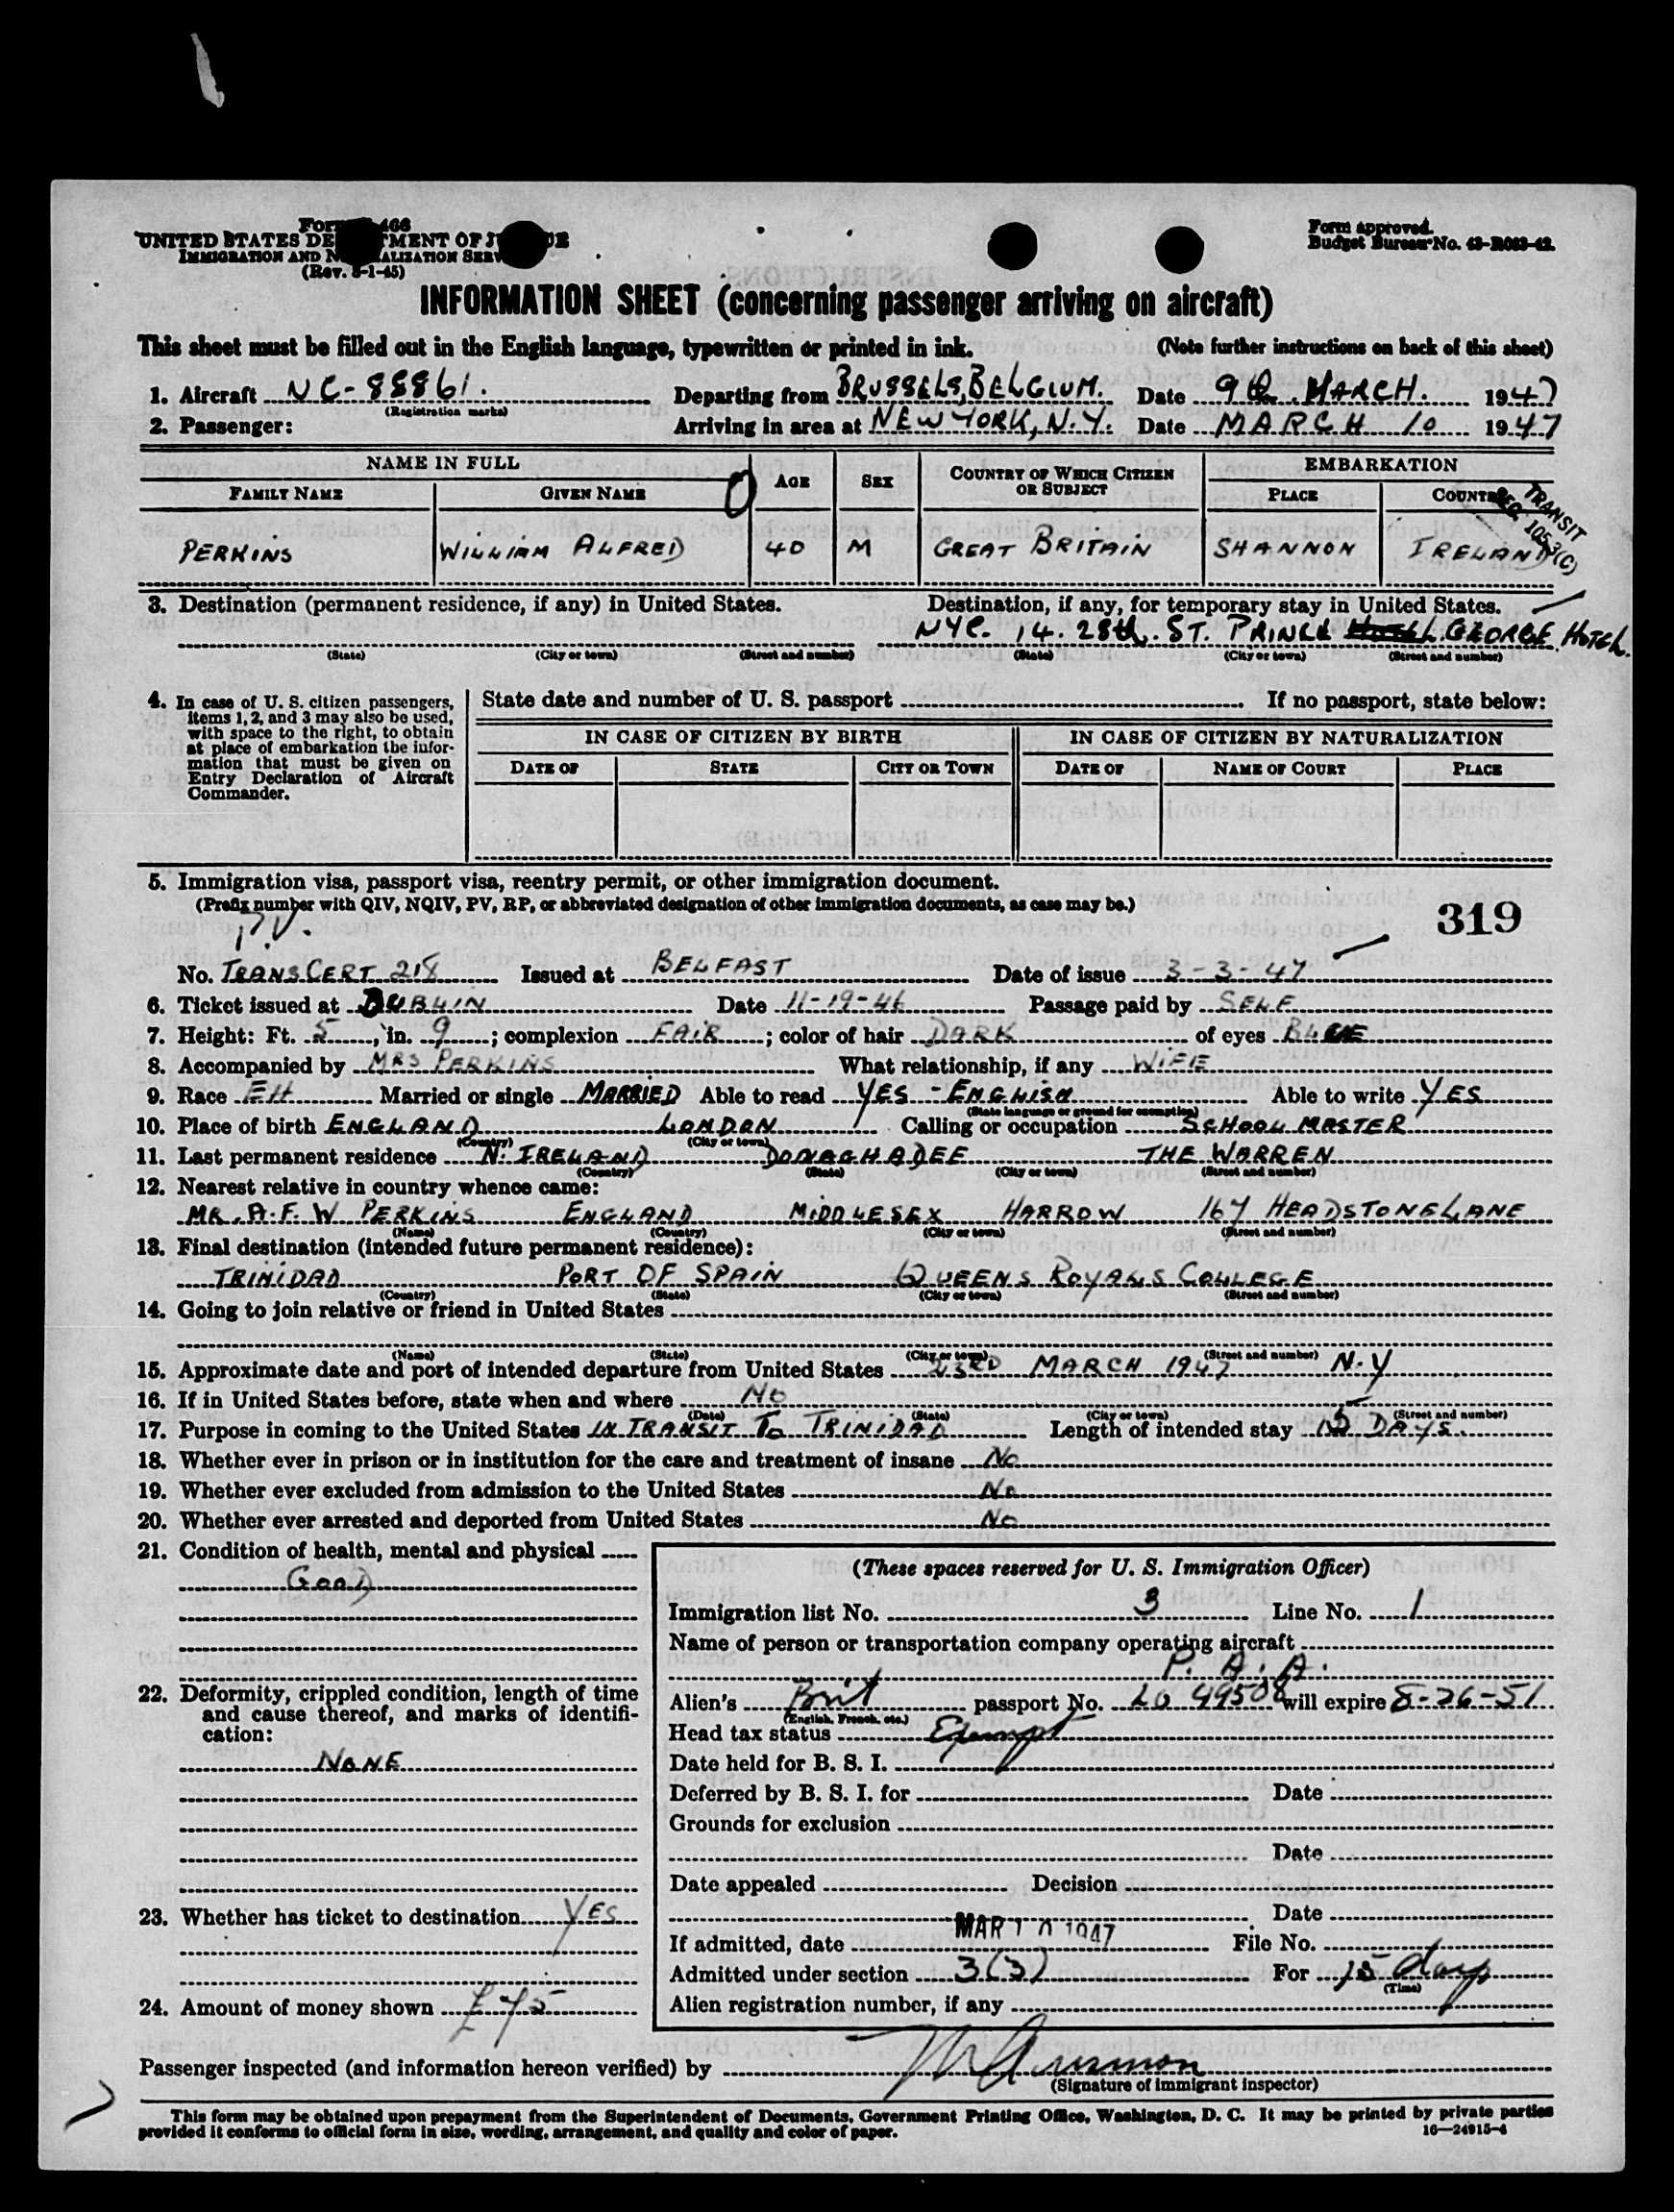 Form 466
UNITED STATES DE MENT OF J
IMMIGRATION AND N ALIZATION SERV
(Rev. 5-1-45)
Form approved.
Budget Bureau No. 43-R063-42.
INFORMATION SHEET (concerning passenger arriving on aircraft)
This sheet must be filled out in the English language, typewritten or printed in ink. (Note further instructions on back of this sheet)
1. Aircraft NC-88861. Departing from BRUSSELS, BELGIUM. Date 9th MARCH. 1947
(Registration marks)
2. Passenger: Arriving in area at NEW YORK, N.Y. Date MARCH 10 1947
NAME IN FULL AGE SEX COUNTRY OF WHICH CITIZEN OR SUBJECT EMBARKATION
FAMILY NAME GIVEN NAME PLACE COUNTRY
TRANSIT
105.3(C)
PERKINS WILLIAM ALFRED 40 M GREAT BRITAIN SHANNON IRELAND
3. Destination (permanent residence, if any) in United States. Destination, if any, for temporary stay in United States.
NYC. 14. 28th. ST. PRINCE GEORGE HOTEL.
(State) (City or town) (Street and number) (State) (City or town) (Street and number)
4. In case of U. S. citizen passengers, items 1, 2, and 3 may also be used, with space to the right, to obtain at place of embarkation the information that must be given on Entry Declaration of Aircraft Commander.
State date and number of U. S. passport If no passport, state below:
IN CASE OF CITIZEN BY BIRTH IN CASE OF CITIZEN BY NATURALIZATION
DATE OF STATE CITY OR TOWN DATE OF NAME OF COURT PLACE
5. Immigration visa, passport visa, reentry permit, or other immigration document.
(Prefix number with QIV, NQIV, PV, RP, or abbreviated designation of other immigration documents, as case may be.)
319
P.V.
No. TRANS CERT 218 Issued at BELFAST Date of issue 3-3-47
6. Ticket issued at DUBLIN Date 11-19-46 Passage paid by SELF
7. Height: Ft. 5, in. 9; complexion FAIR; color of hair DARK of eyes BLUE
8. Accompanied by MRS PERKINS What relationship, if any WIFE
9. Race EH Married or single MARRIED Able to read YES - ENGLISH Able to write YES
(State language or ground for exemption)
10. Place of birth ENGLAND LONDON Calling or occupation SCHOOL MASTER
(Country) (City or town)
11. Last permanent residence N. IRELAND DONAGHADEE THE WARREN
(Country) (State) (City or town) (Street and number)
12. Nearest relative in country whence came:
MR. A.F.W PERKINS ENGLAND MIDDLESEX HARROW 167 HEADSTONE LANE
(Name) (Country) (City or town) (Street and number)
13. Final destination (intended future permanent residence):
TRINIDAD PORT OF SPAIN QUEENS ROYALS COLLEGE
(Country) (State) (City or town) (Street and number)
14. Going to join relative or friend in United States
(Name) (State) (City or town) (Street and number)
15. Approximate date and port of intended departure from United States 23RD MARCH 1947 N.Y
16. If in United States before, state when and where NO
(Date) (State) (City or town) (Street and number)
17. Purpose in coming to the United States IN TRANSIT TO TRINIDAD Length of intended stay 15 DAYS.
18. Whether ever in prison or in institution for the care and treatment of insane No
19. Whether ever excluded from admission to the United States No
20. Whether ever arrested and deported from United States No
21. Condition of health, mental and physical
GOOD
22. Deformity, crippled condition, length of time and cause thereof, and marks of identification:
NONE
23. Whether has ticket to destination YES
24. Amount of money shown £75
(These spaces reserved for U. S. Immigration Officer)
Immigration list No. 3 Line No. 1
Name of person or transportation company operating aircraft
P. A. A.
Alien's Brit passport No. LO 49508 will expire 8-26-51
(English, French, etc.)
Head tax status Exempt
Date held for B. S. I.
Deferred by B. S. I. for Date
Grounds for exclusion
Date
Date appealed Decision
Date
If admitted, date MAR 10 1947 File No.
Admitted under section 3(3) For 15 days
(Time)
Alien registration number, if any
Passenger inspected (and information hereon verified) by
(Signature of immigrant inspector)
This form may be obtained upon prepayment from the Superintendent of Documents, Government Printing Office, Washington, D. C. It may be printed by private parties
provided it conforms to official form in size, wording, arrangement, and quality and color of paper. 16—24915-4